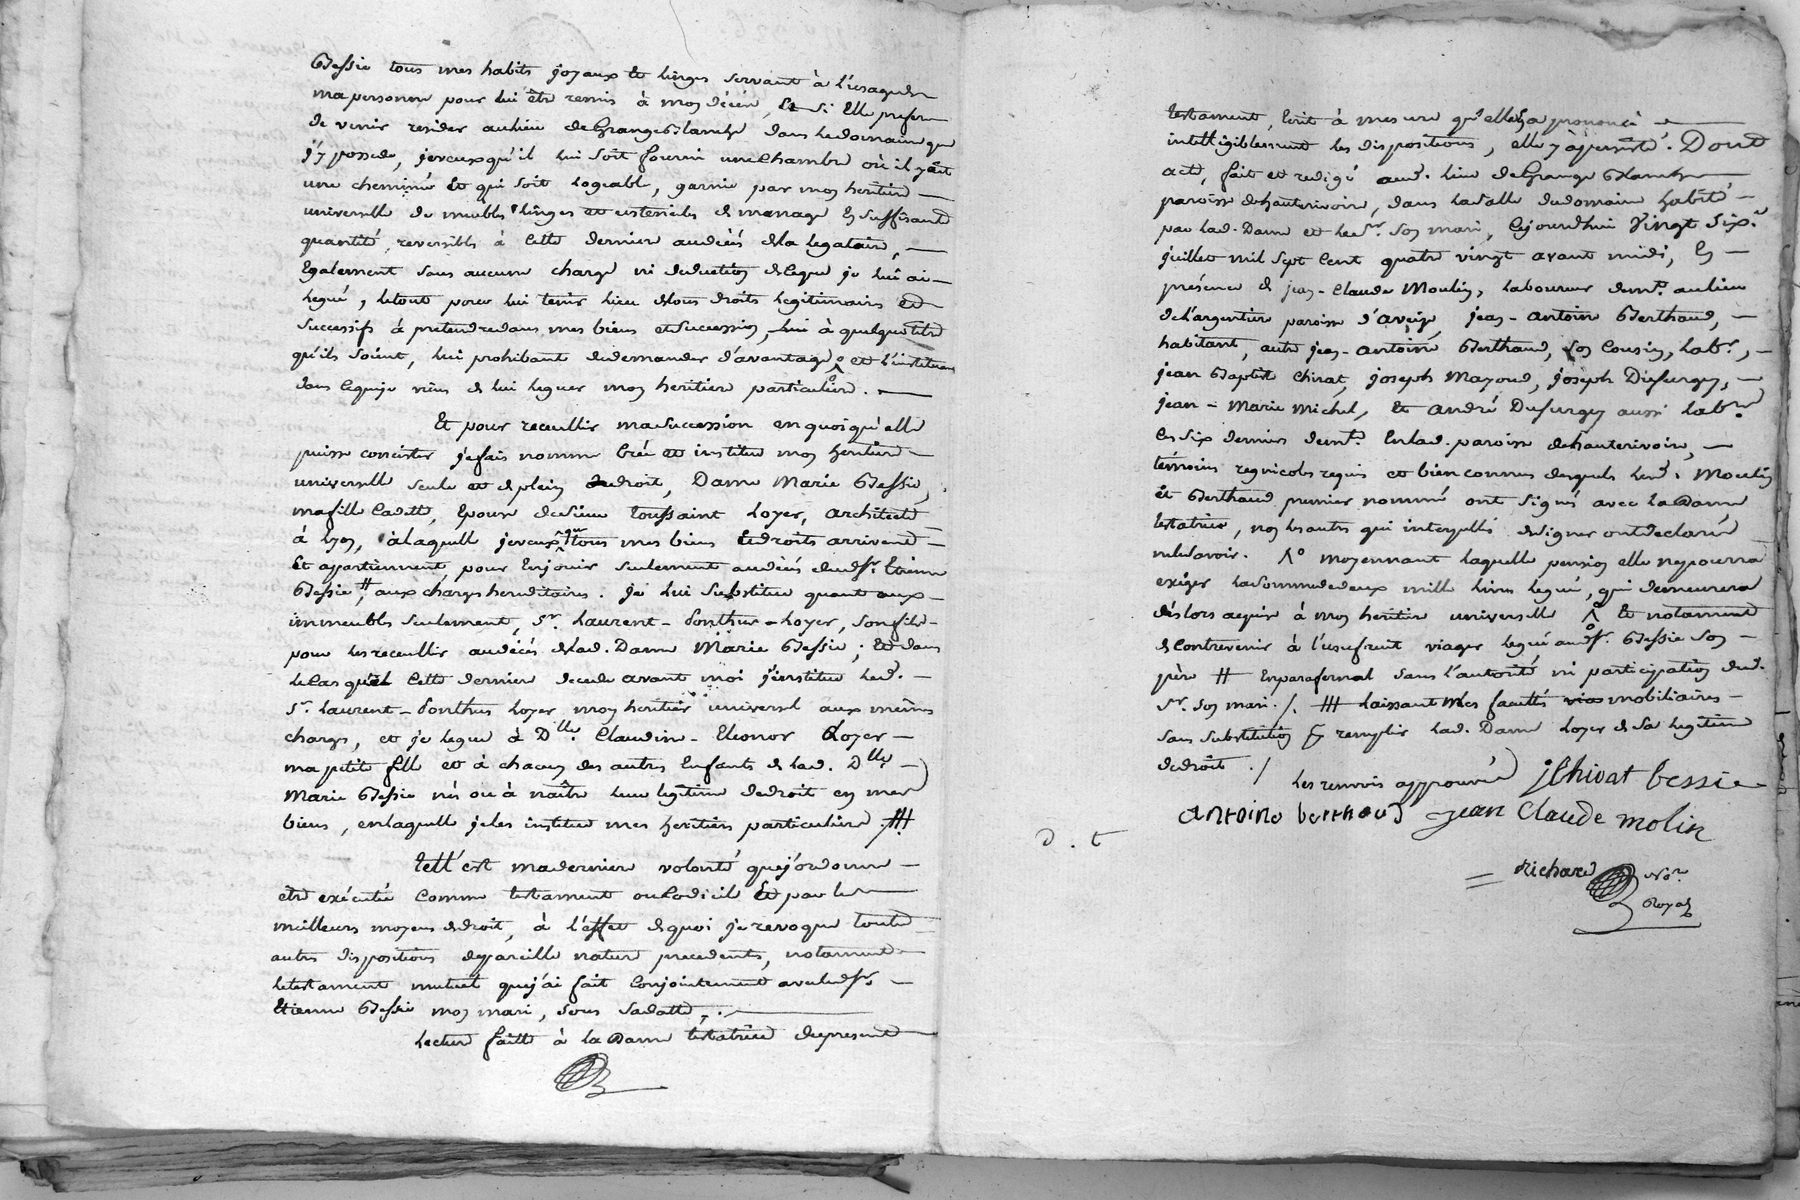 Bessie tous mes habits joyaux et linges servant à l'usage de
ma personne pour lui être remis à mon décéd, Et si Elle prefere
de venir resider au lieu de Grange Blanche dans le domaine que
j'y possede, je veux qu'il lui soit fourni une Chambre où il y ait
une cheminé et qui soit logeable, garnie par mon heritiere
universelle de meubles linges et ustenciles de menage En suffisante
quantité, reversible à Cette derniere au décès de la legataire, —
Egalement sans aucune charge ni deduction de ce que je lui ai —
legué, le tout pour lui tenir lieu de tous droits legitimaires et
successifs à pretendre dans mes biens et succession, à quelque titre
qu'ils soient, lui prohibant de demander d'avantage et l'instituant
dans ce que je viens de lui leguer mon heritiere particuliere . —
Et pour receuillir ma succession en quoi qu'elle
puisse concister je fais nomme Crée et institue mon heritiere —
universelle seule et de plein droit, Dame Marie Bessie,
ma fille Cadette, Epouse de sieur Toussaint Loyer, architecte
à Lyon, à laquelle je veux que tous mes biens et droits arrivent —
Et appartiennent, pour En jouir seulement au décès dudt Sr. Etienne
Bessie, # aux charges hereditaires. Je lui substitue quant aux —
immeubles seulement, Sr. Laurent - ponthus - Loyer, son fils —
pour les receuillir au décés de lad. Dame Marie Bessie ; Et dans
le Cas que Cette derniere decede avant moi j'institue led. —
Sr. Laurent - ponthus Loyer mon heritier universel aux mêmes
charges, et je legue à Dlle. Claudine - Eleonor Loyer —
ma petite fille et à chacun des autres Enfants de lad. Dlle —
Marie Bessie nés ou à naître leur legitime de droit en mes
biens, en laquelle je les institue mes heritiers particuliers . ##
Telle est ma derniere volonté que j'ordonne —
être exécutée comme testament ou Codicile Et par les
meilleurs moyens de droit, à l'effet de quoi je revoque toute
autres dispositions de pareille nature precedentes, notament —
le testament mutuel que j'ai fait Conjointement avec led. Sr. —
Etienne Bessie mon mari, sous sa datte, . —
Lecture faitte à la Dame testatrice du present
testament, Ecrit à mesure qu'elle en a prononcé —
intelligiblement les dispositions, elle y a persisté. Dont
acte, fait et redigé aud. lieu de Grange Blanche
paroisse de hauterivoire, dans la salle du domaine habité —
par lad. Dame et led. Sr. son mari, Cejourdhui Vingt six
juillet mil sept Cent quatre vingt avant midi, En —
présence de jean - Claude Moulin, laboureur demt. au lieu
de l'argentiere paroisse d'aveize, jean - antoine Berthaud, —
habitant, autre jean - antoine Berthaud, son Cousin, labr., —
jean Baptiste Chirat, joseph Mazoud, joseph Dufurgey, —
jean - Marie Michel, Et andré Dufurgey aussi labrs.
les six derniers demts. En lad. paroisse de hauterivoire, —
témoins regnicoles requis et bien connus desquels led. Moulin
et Berthaud premier nommé ont signés avec la Dame
testatrice, non les autres qui interpellés de signer ont declaré
ne le savoir. ⋀° moyennant laquelle pension elle ne pourra
exiger la somme de deux mille livres legué, qui demeurera
dès lors acquise à mon heritiere universelle ⋀ Et notament
de Contrevenir à l'usufruit viager legué aud. Sr. Bessie son —
père # En parafernal sans l'autorité ni participation dud.
Sr. son mari. /. ## laissant mes facultés mobiliaires —
sans substitution pr. remplir lad. Dame Loyer de sa legitime
de droit . /
Les renvois approuvés J Chirat bessie
antoine berthaud jean Claude molin
D . t
Richard Nore.
Royal